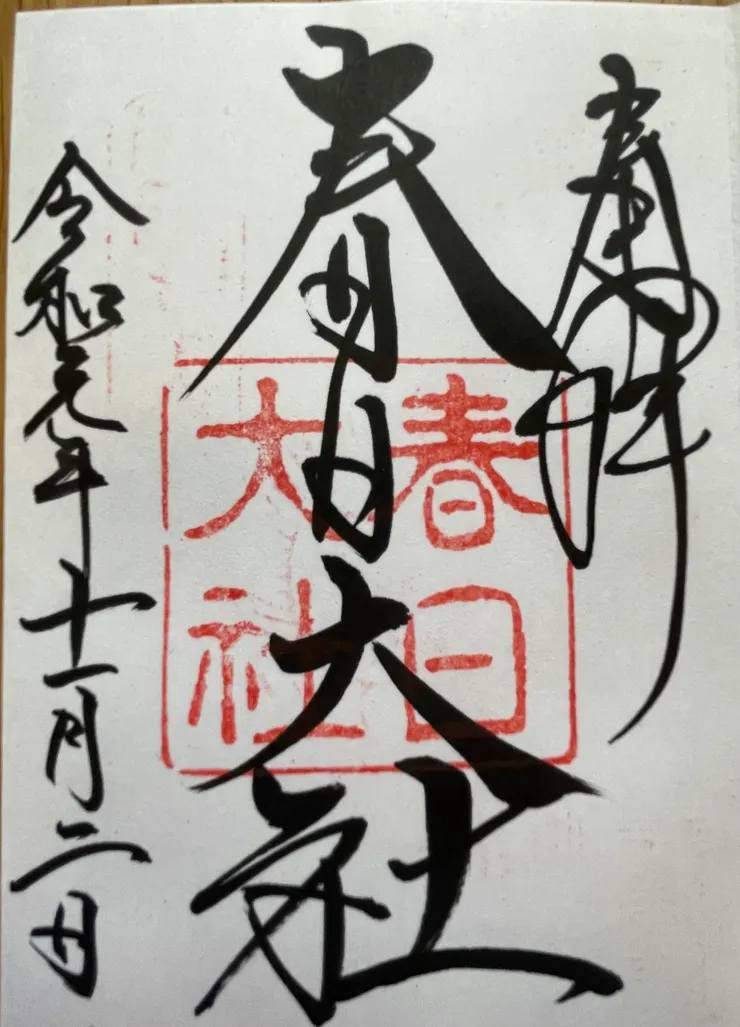 奉拝
春日大社
春日
大社
令和元年十一月二日